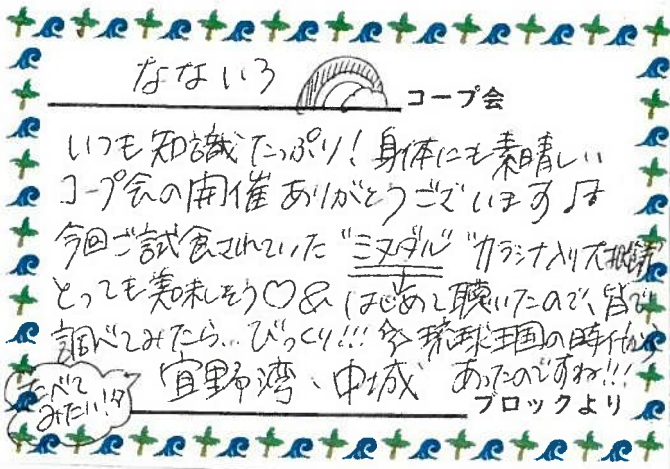 なないろ コープ会
いつも知識たっぷり!身体にも素晴しい
コープ会の開催ありがとうございます♪
今回ご試食されていた"ミヌダル""カラシナ入り
とっても美味しそう♡& はじめて聴いたので、皆で
調べてみたら…びっくり!!! 琉球王国の時代から
宜野湾、中城 あったのですね!!!
たべてみたい!
ブロックより